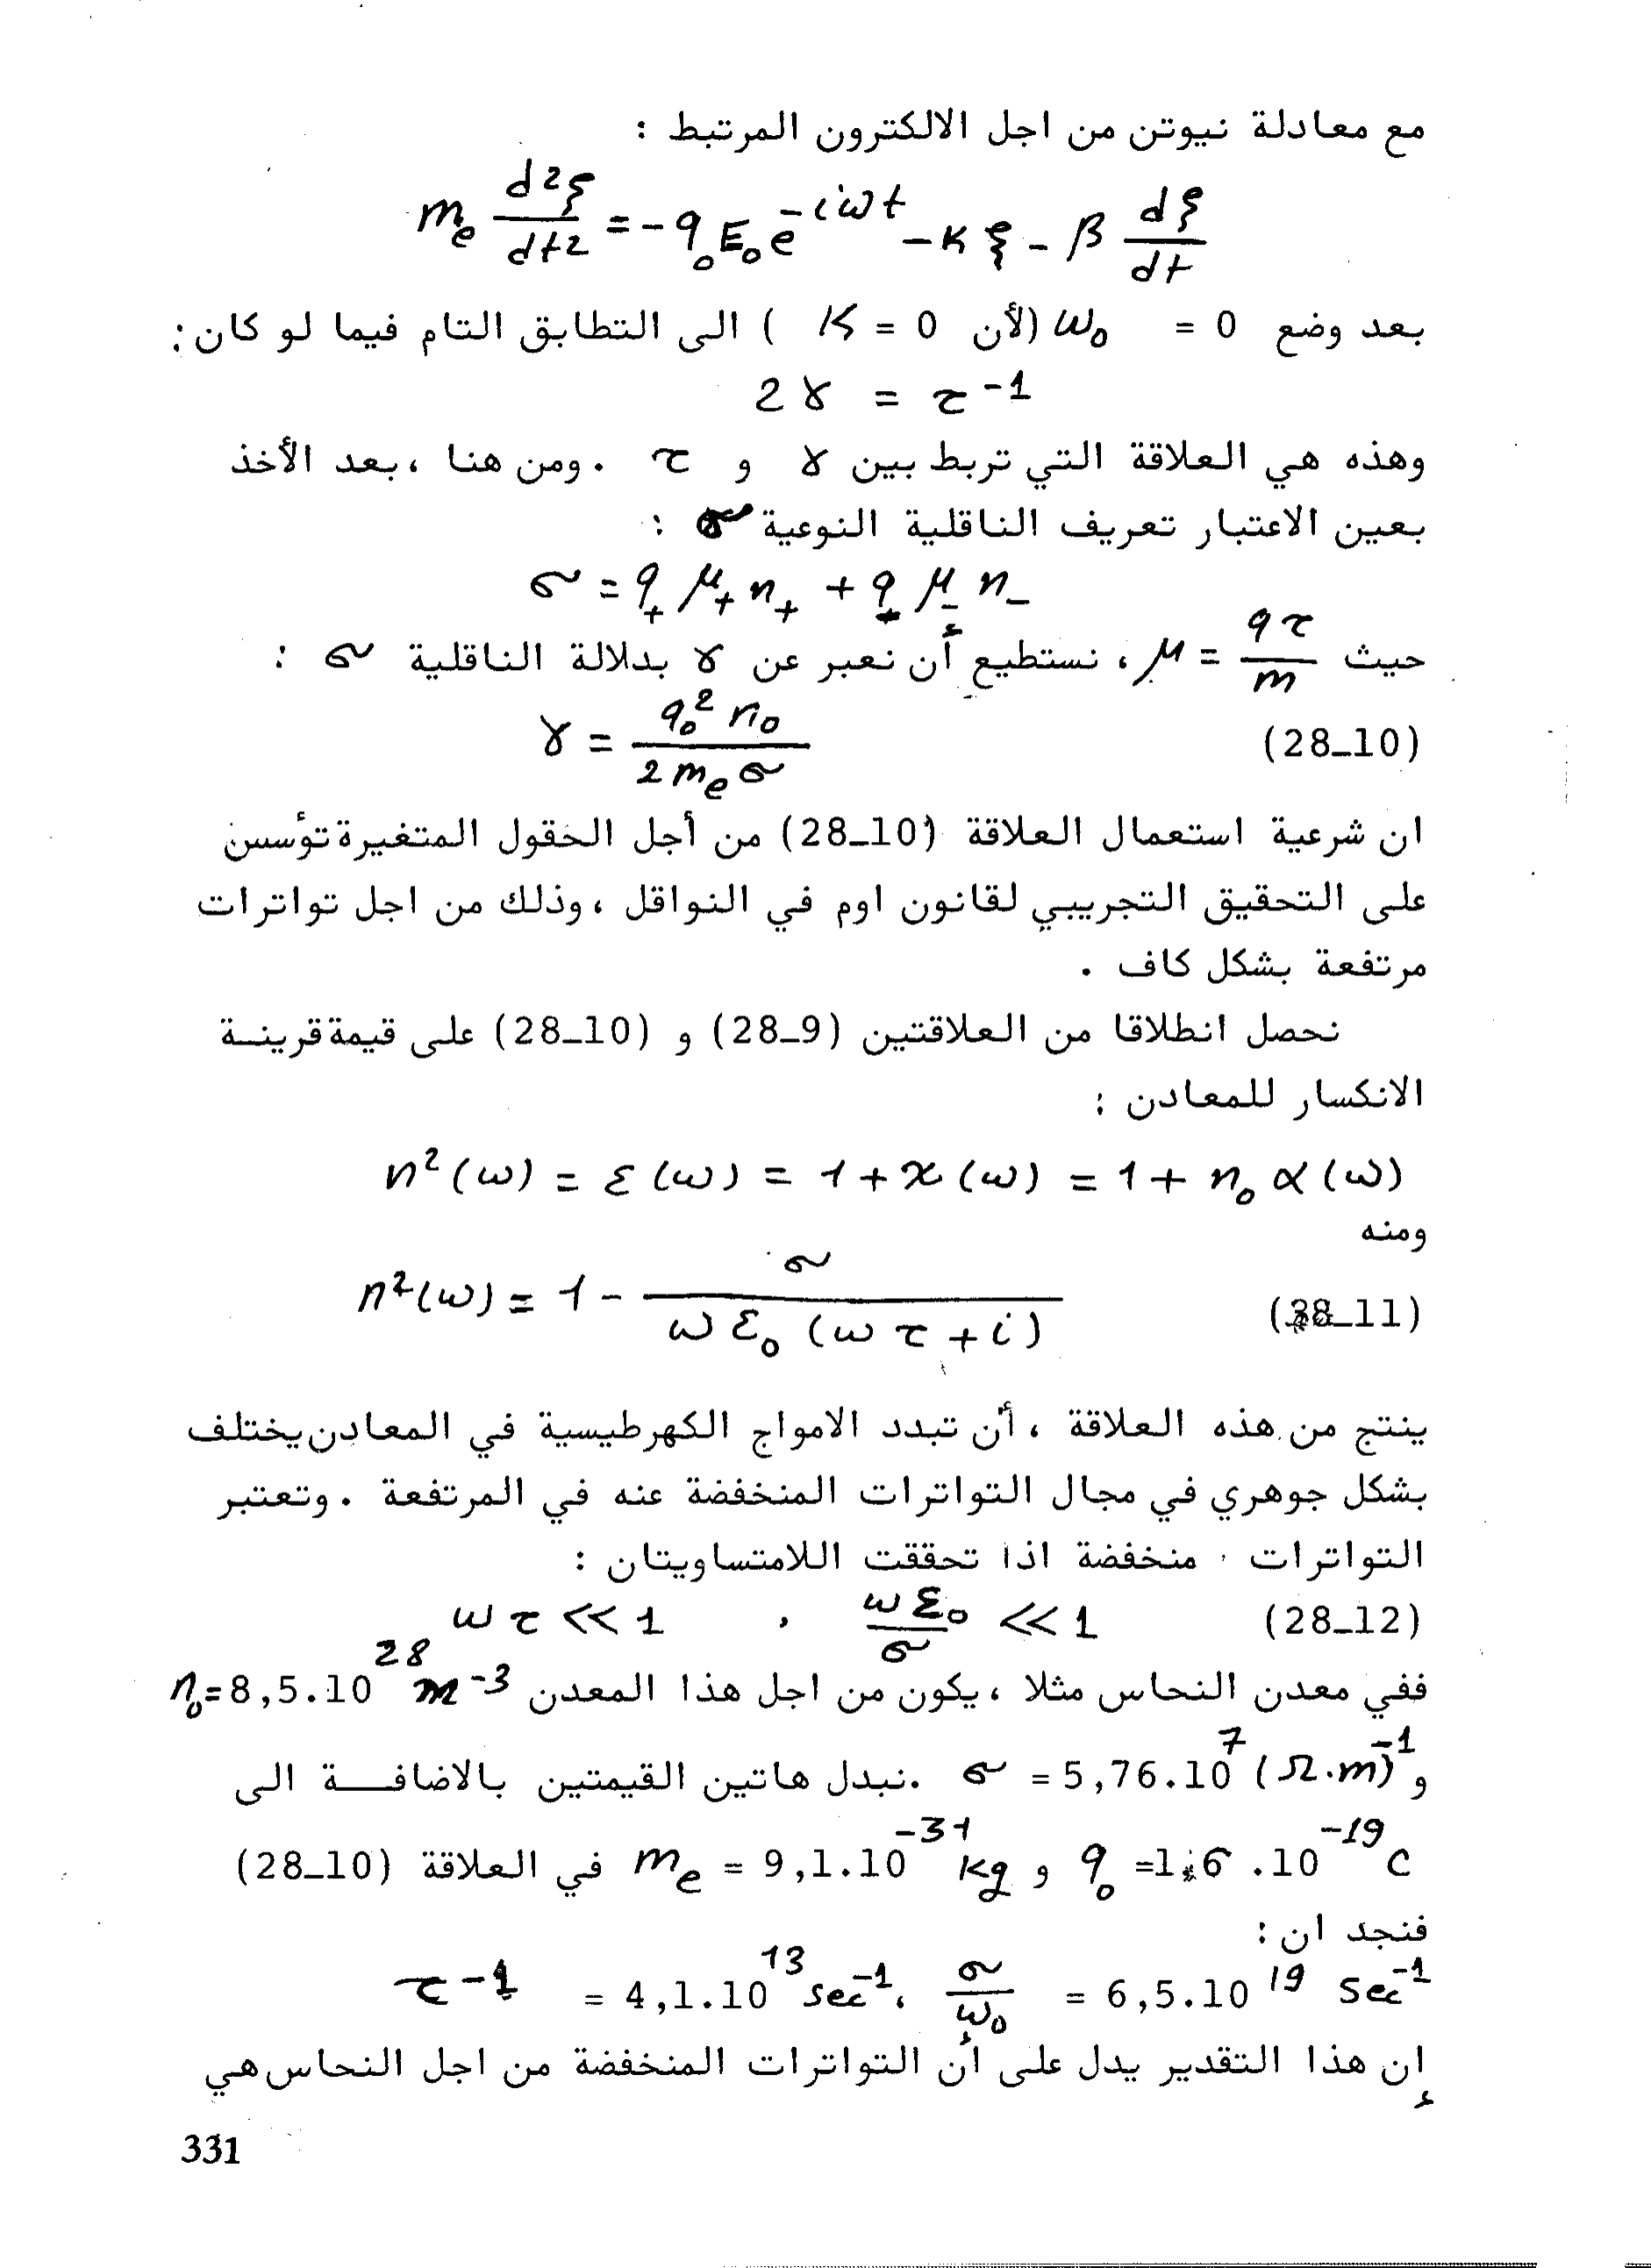 مع معادلة نيوتن من اجل الالكترون المرتبط :
m_e d²ξ/dt² = -q₀E₀e^{-iωt} - κξ - β dξ/dt
بعد وضع 0 = ω₀ (لأن K = 0 ) الى التطابق التام فيما لو كان :
2γ = τ^{-1}
وهذه هي العلاقة التي تربط بين γ و τ . ومن هنا ، بعد الأخذ
بعين الاعتبار تعريف الناقلية النوعية σ :
σ = q₊ μ₊ n₊ + q₋ μ₋ n₋
حيث μ = qτ/m ، نستطيع أن نعبر عن γ بدلالة الناقلية σ :
γ = q₀² n₀ / 2 m_e σ (28_10)
ان شرعية استعمال العلاقة (28_10) من أجل الحقول المتغيرة تؤسس
على التحقيق التجريبي لقانون اوم في النواقل ، وذلك من اجل تواترات
مرتفعة بشكل كاف .
نحصل انطلاقا من العلاقتين (28_9) و (28_10) على قيمة قرينـة
الانكسار للمعادن :
n²(ω) = ε(ω) = 1 + χ(ω) = 1 + n₀ α(ω)
ومنه
n²(ω) = 1 - σ / ωε₀(ωτ + i) (28_11)
ينتج من هذه العلاقة ، أن تبدد الامواج الكهرطيسية في المعادن يختلف
بشكل جوهري في مجال التواترات المنخفضة عنه في المرتفعة . وتعتبر
التواترات منخفضة اذا تحققت اللامتساويتان :
ωτ << 1 ، ωε₀/σ << 1 (28_12)
ففي معدن النحاس مثلا ، يكون من اجل هذا المعدن n₀=8,5.10^{28} m^{-3}
و σ = 5,76.10^{7} (Ω.m)^{-1} . نبدل هاتين القيمتين بالاضافــة الى
q₀ =1,6 .10^{-19} C و m_e = 9,1.10^{-31} kg في العلاقة (28_10)
فنجد ان :
τ^{-1} = 4,1.10^{13} sec^{-1} ، σ/ω₀ = 6,5.10^{19} sec^{-1}
إن هذا التقدير يدل على أن التواترات المنخفضة من اجل النحاس هي
331